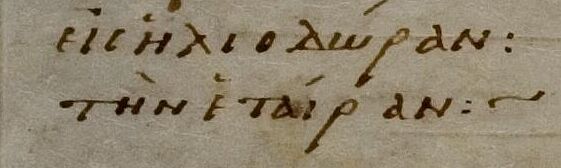 εἰς ἡλιοδώραν:
τὴν ἑταίραν:~